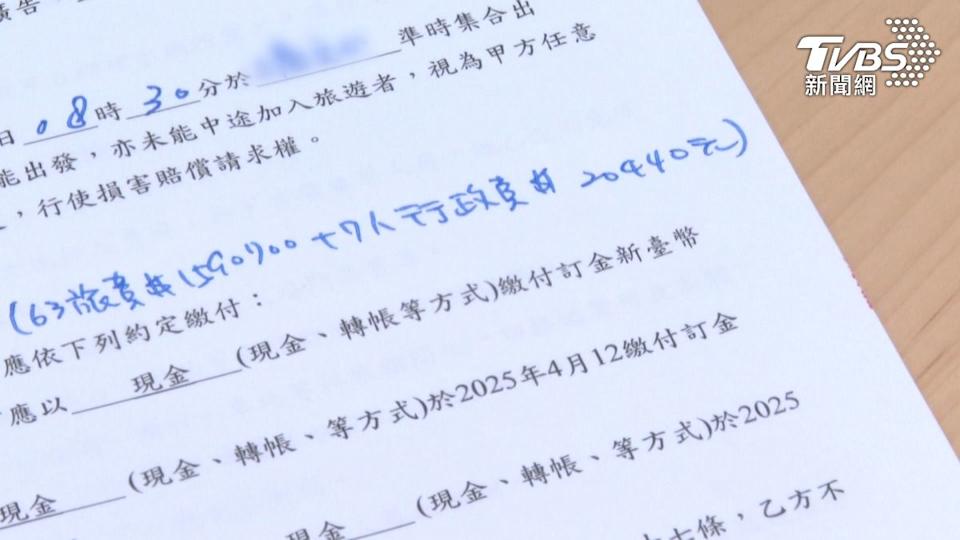 TVBS
新聞網
日 08 時 30 分於 準時集合出
能出發，亦未能中途加入旅遊者，視為甲方任意
，行使損害賠償請求權。
(63旅費#1590700+7人行政費# 20440元)
應依下列約定繳付：
應以 現金 (現金、轉帳等方式)繳付訂金新臺幣
現金 (現金、轉帳、等方式)於2025年4月12繳付訂金
現金 (現金、轉帳、等方式)於2025
十七條，乙方不